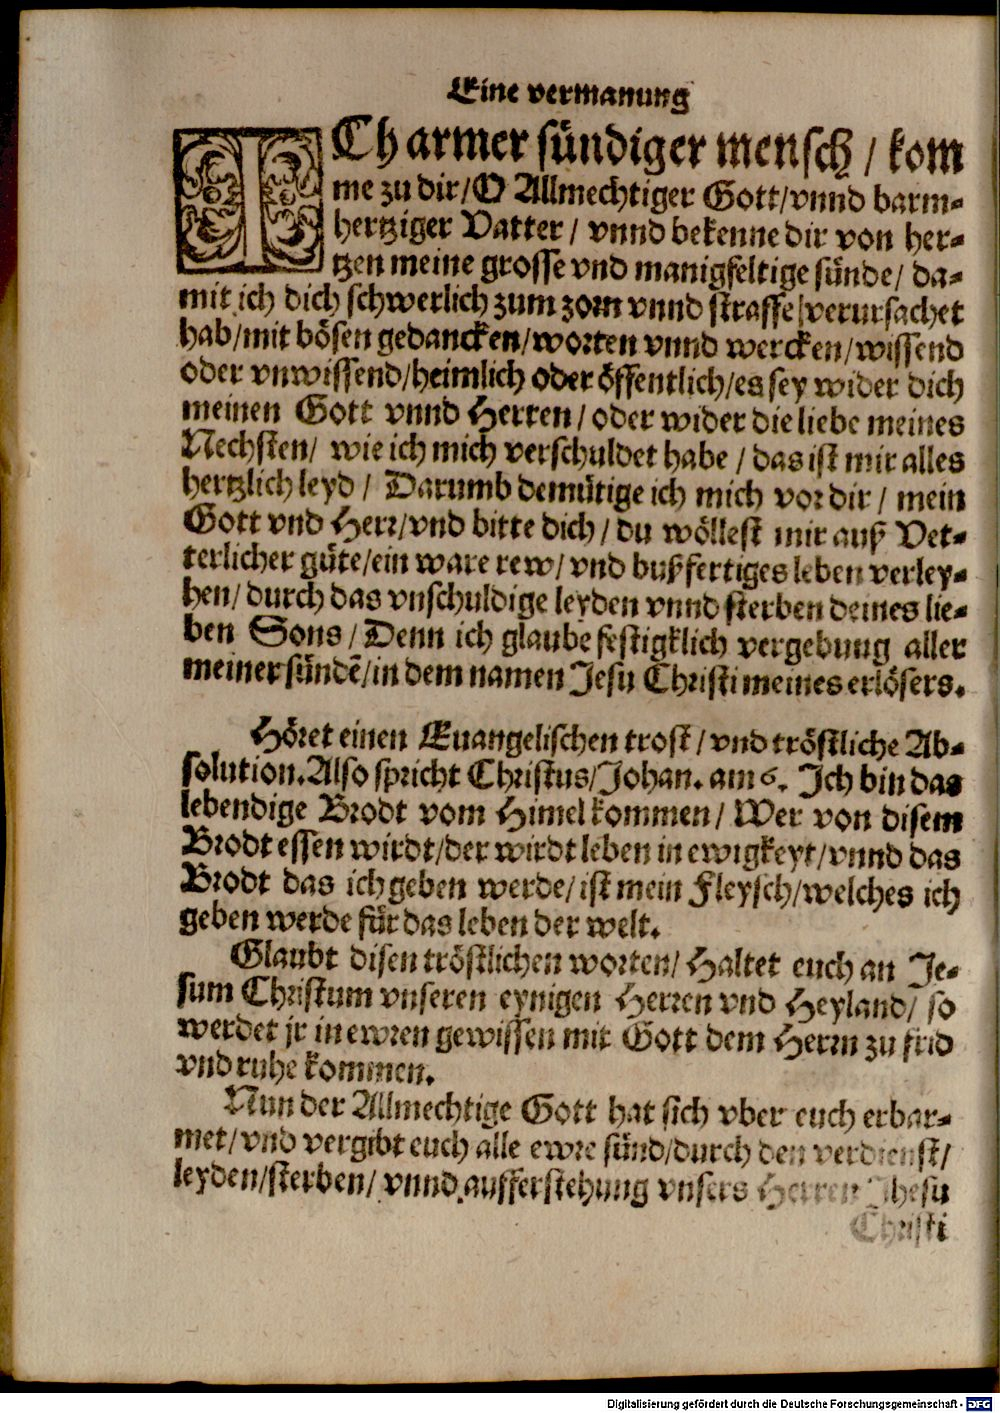 Eine vermanung
ICh armer sündiger mensch / kom
me zu dir/O Allmechtiger Gott/vnnd barm-
hertziger Vatter / vnnd bekenne dir von her-
tzen meine grosse vnd manigfeltige sünde/ da-
mit ich dich schwerlich zum zorn vnnd straffe verursachet
hab/mit bösen gedancken/worten vnnd wercken/wissend
oder vnwissend/heimlich oder öffentlich/es sey wider dich
meinen Gott vnnd Herren/oder wider die liebe meines
Nechsten/ wie ich mich verschuldet habe / das ist mir alles
hertzlich leyd / Darumb demütige ich mich vor dir / mein
Gott vnd Herr/vnd bitte dich / du wöllest mir auß Vet-
terlicher güte/ein ware rew/ vnd bußfertiges leben verley-
hen/ durch das vnschuldige leyden vnnd sterben deines lie-
ben Sons / Denn ich glaube festigklich vergebung aller
meiner sündē/in dem namen Jesu Christi meines erlösers.
Höret einen Euangelischen trost / vnd tröstliche Ab-
solution. Also spricht Christus/Johan. am 6. Ich bin das
lebendige Brodt vom Himel kommen/ Wer von disem
Brodt essen wirdt/der wirdt leben in ewigkeyt/vnnd das
Brodt das ich geben werde/ist mein Fleysch/welches ich
geben werde für das leben der welt.
Glaubt disen tröstlichen worten/ Haltet euch an Je-
sum Christum vnseren eynigen Herren vnd Heyland/ so
werdet jr in ewren gewissen mit Gott dem Herrn zu frid
vnd ruhe kommen.
Nun der Allmechtige Gott hat sich vber euch erbar-
met/vnd vergibt euch alle ewre sünd/durch den verdienst/
leyden/sterben/ vnnd aufferstehung vnsers Herren Jhesu
Christi
Digitalisierung gefördert durch die Deutsche Forschungsgemeinschaft - DFG